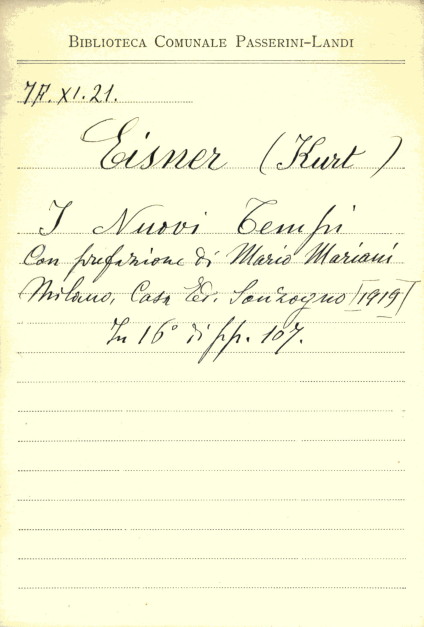 BIBLIOTECA COMUNALE PASSERINI-LANDI
7R. XI. 21.
Eisner (Kurt)
I Nuovi Tempi
Con prefazione di Mario Mariani
Milano, Casa Ed. Sonzogno [1919]
In 16° di pp. 107.